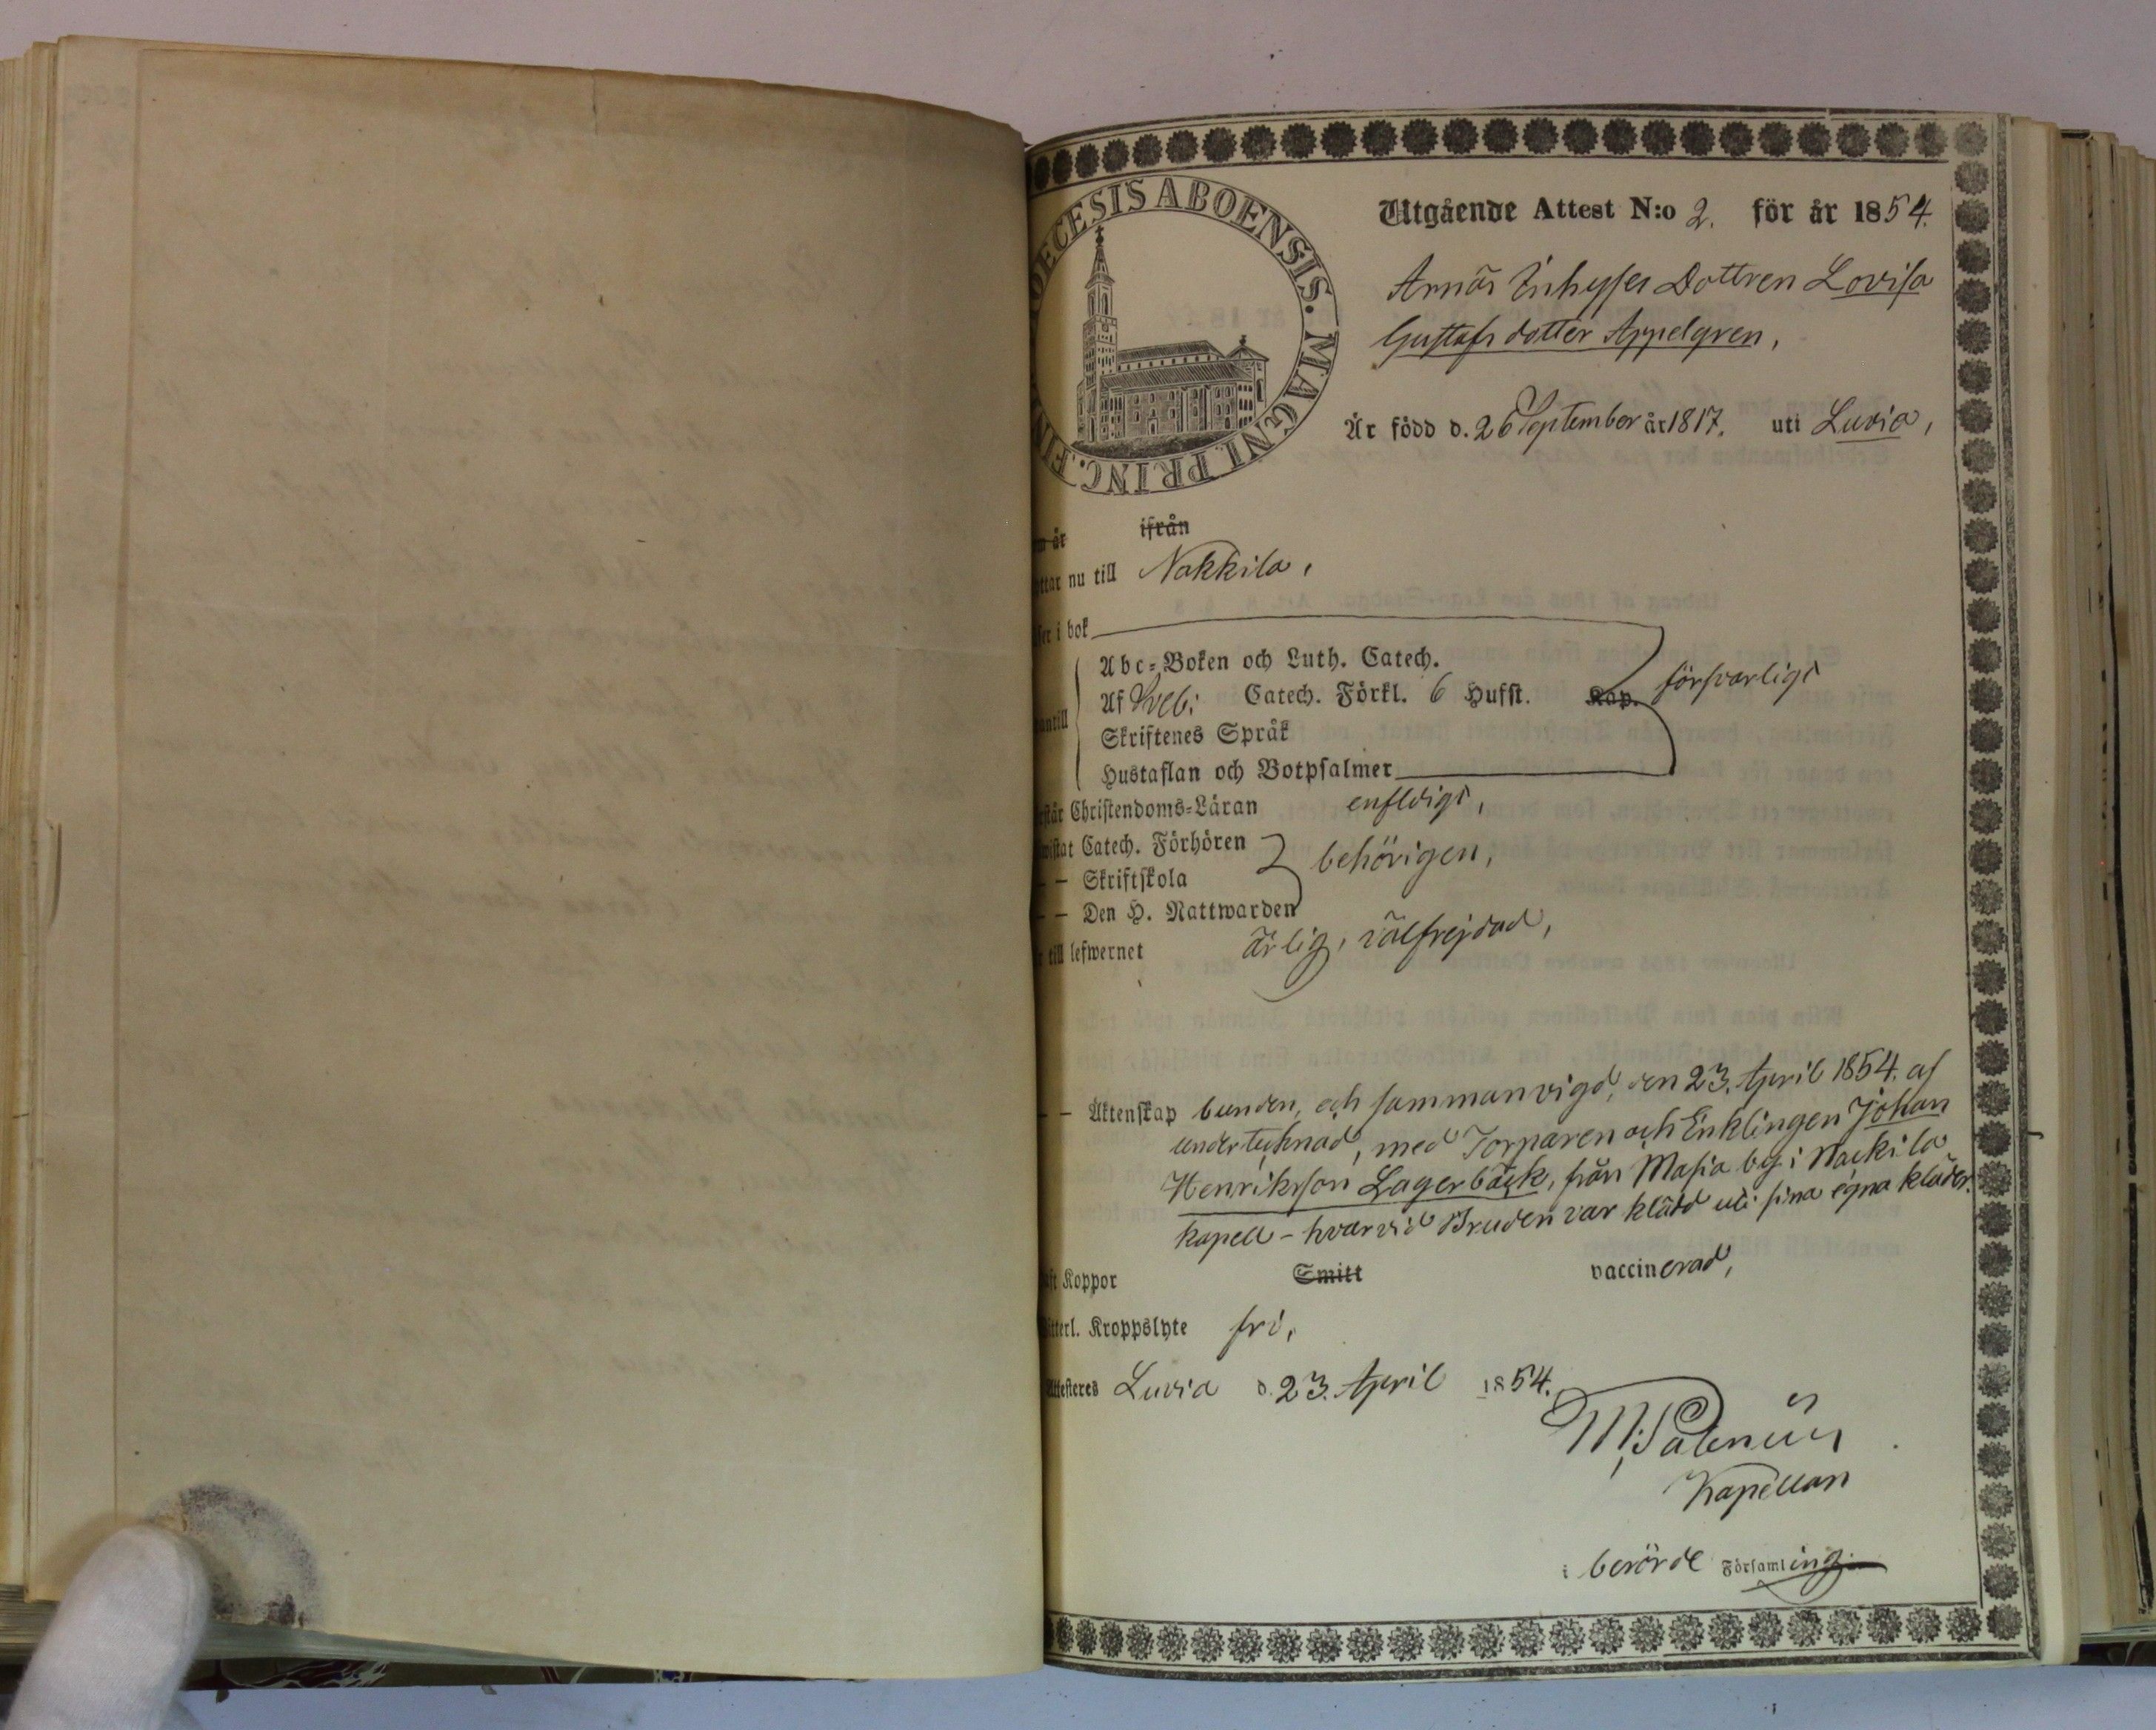 DIOECESIS ABOENSIS. MAGNI. PRINC. FIN
Utgående Attest N:o 2. för år 1854.
Arnäs Inhyses Dottren Lovisa
Gustafs dotter Appelgren,
Är född d. 26 September år 1817. uti Luvia,
är ifrån
nu till Nakkila,
i bok
Abc-Boken och Luth. Catech.
Af Sveb: Catech. Förkl. 6 Hufst. Kap. försvarligt
Skriftenes Språk
Hustaflan och Botpsalmer
Christendoms-Läran enfldigt,
Catech. Förhören
behörigen,
– – Skriftskola
– – Den H. Nattwarden
till lefwernet ärlig, välfrejdad,
– – Äktenskap bunden, och sammanvigd, den 23. April 1854. af
undertecknad, med Torparen och Enklingen Johan
Henriksson Lagerbäck, från Masia by i Nackila
kapell – hvarvid Bruden var klädd uti sina egna kläder.
Koppor Smitt vaccinerad,
Kroppslyte fri,
Luvia d. 23. April 1854.
Kapellan
i berörde Församling.